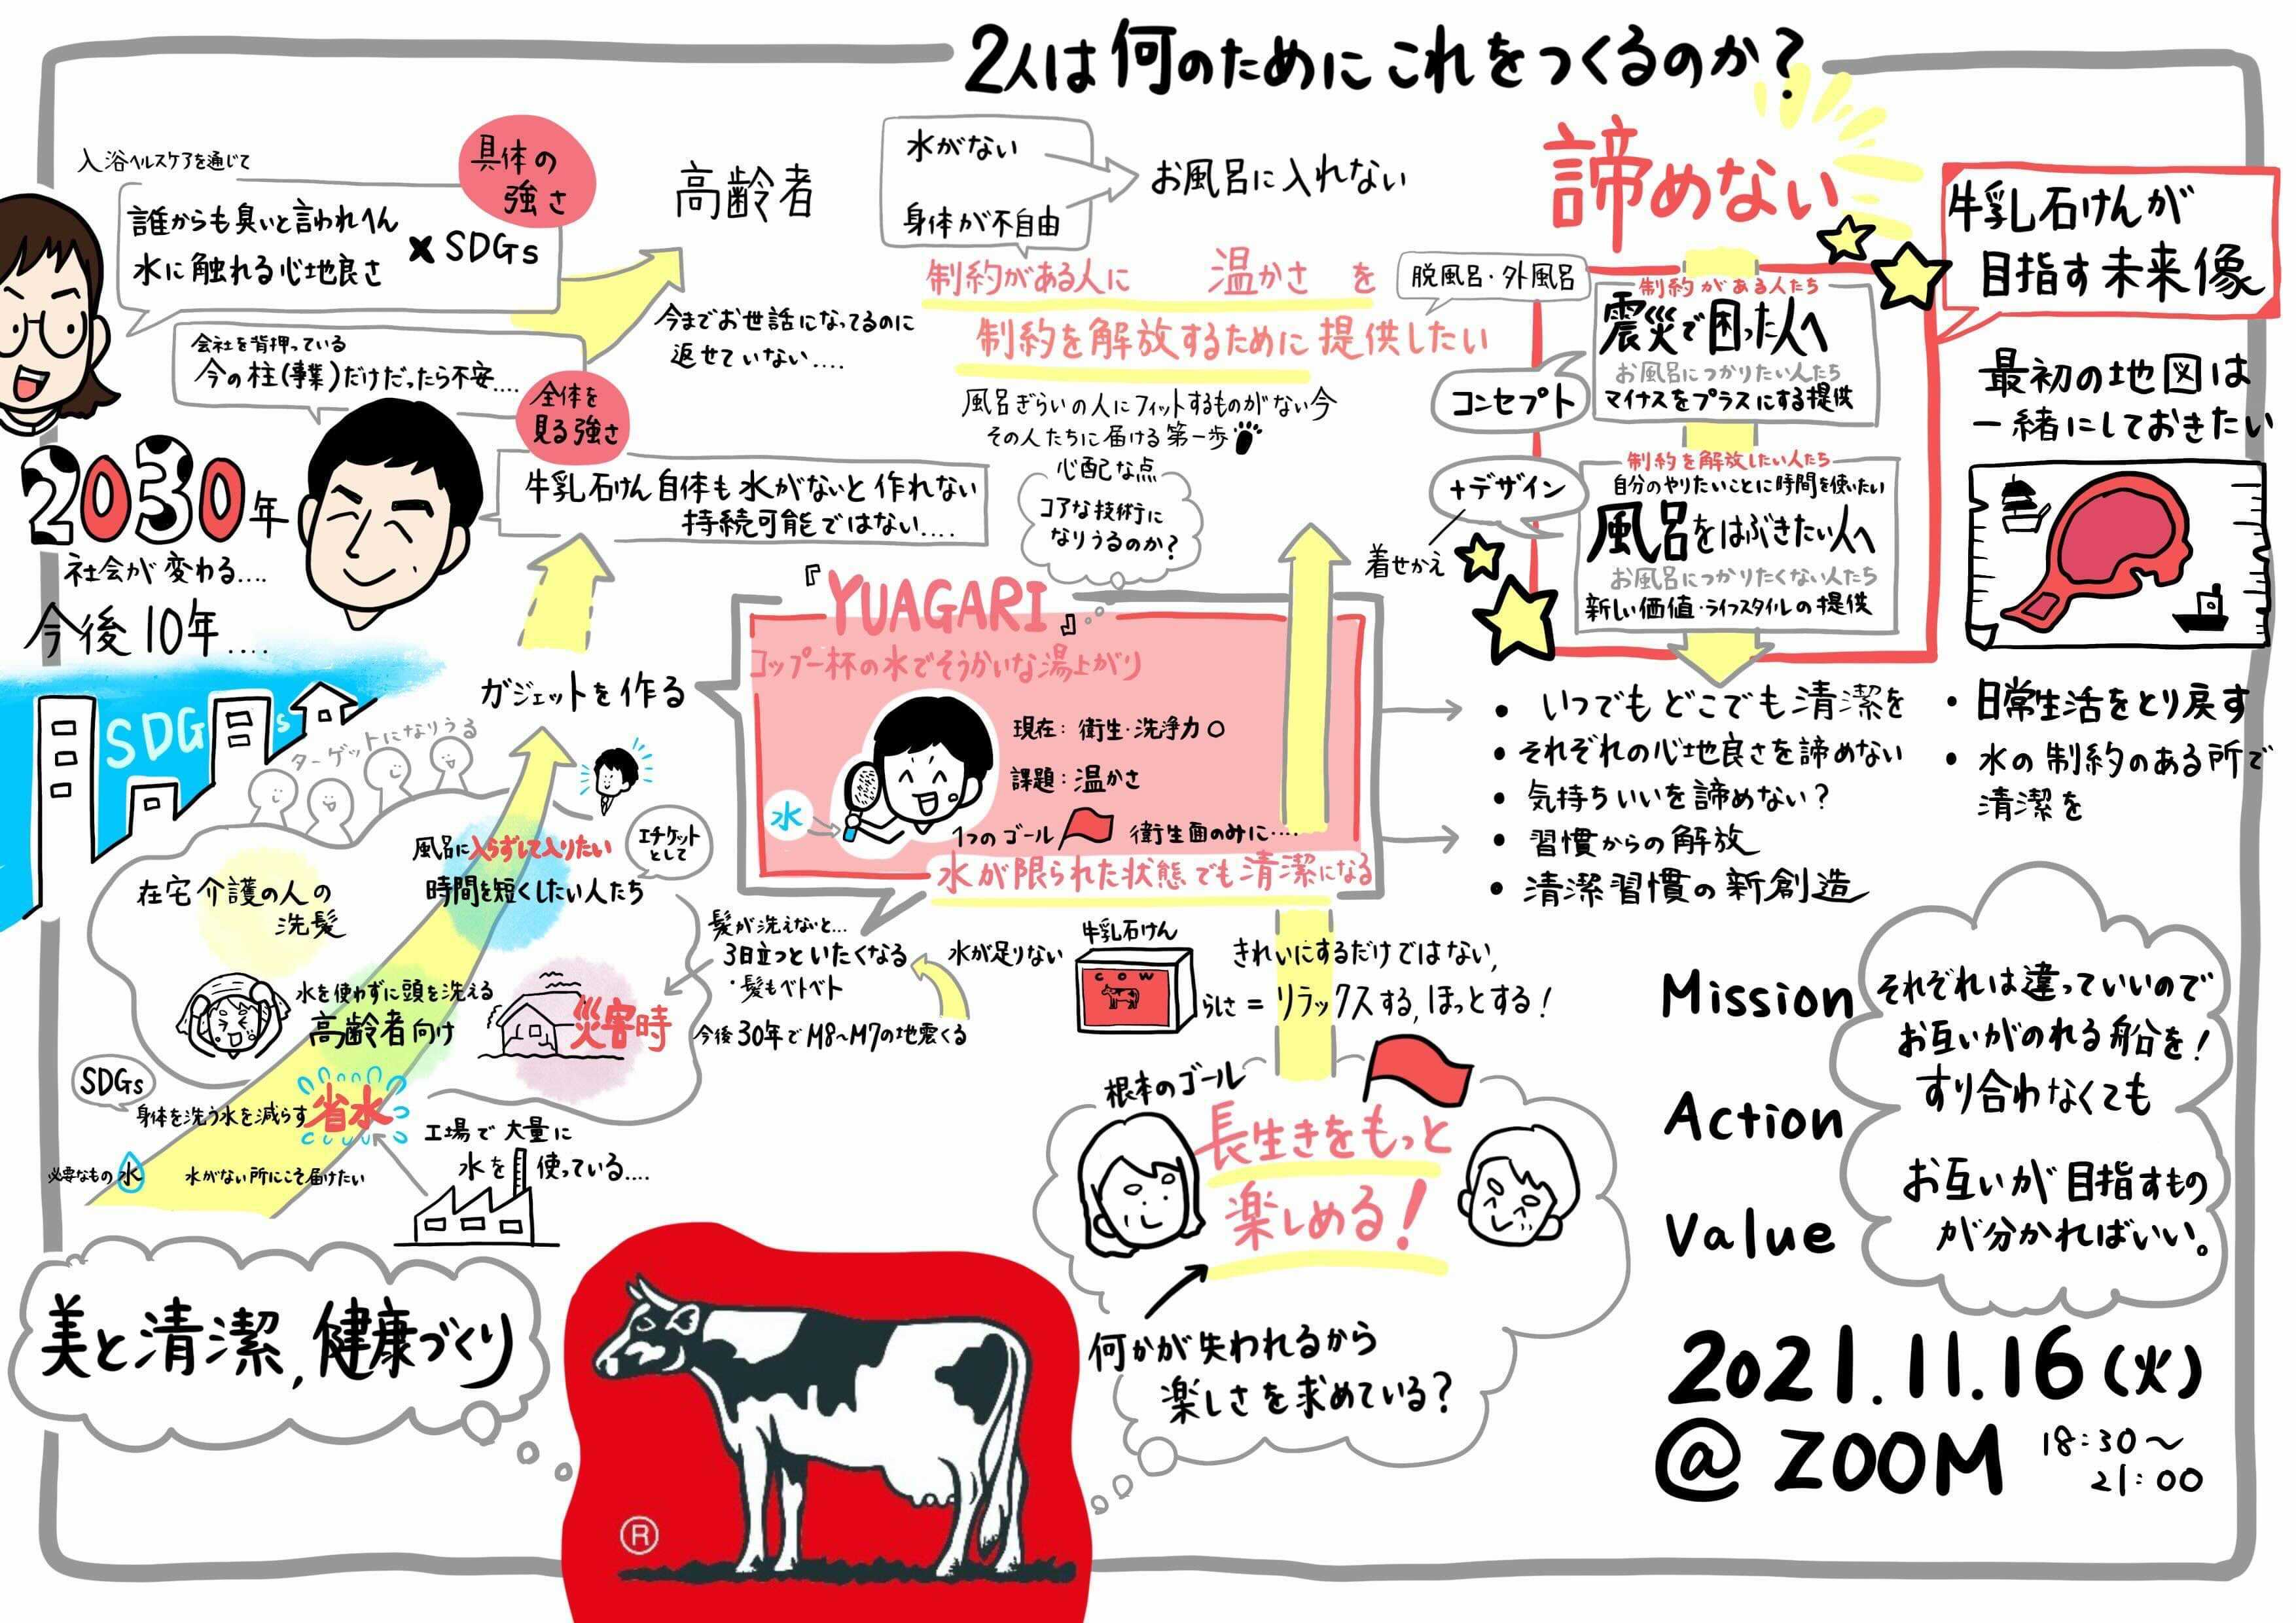 2人は何のためにこれをつくるのか?
入浴ヘルスケアを通じて
具体の
強さ
誰からも臭いと言われへん
水に触れる心地良さ
× SDGs
高齢者
水がない
身体が不自由
お風呂に入れない
諦めない
牛乳石けんが
目指す未来像
制約がある人に 温かさ を
制約を解放するために提供したい
脱風呂・外風呂
会社を背押っている
今の柱(事業)だけだったら不安....
全体を
見る強さ
今までお世話になってるのに
返せていない....
風呂ぎらいの人にフィットするものがない今
その人たちに届ける第一歩
心配な点
コアな技術に
なりうるのか?
牛乳石けん自体も水がないと作れない
持続可能ではない....
2030年
社会が変わる....
今後10年....
SDGs
コンセプト
+デザイン
着せかえ
制約がある人たち
震災で困った人へ
お風呂につかりたい人たち
マイナスをプラスにする提供
制約を解放したい人たち
自分のやりたいことに時間を使いたい
風呂をはぶきたい人へ
お風呂につかりたくない人たち
新しい価値・ライフスタイルの提供
最初の地図は
一緒にしておきたい
『YUAGARI』
コップ一杯の水でそうかいな湯上がり
現在: 衛生・洗浄力○
課題: 温かさ
水
1つのゴール
衛生面のみに....
水が限られた状態でも清潔になる
ガジェットを作る
ターゲットになりうる
風呂に入らずして入りたい
時間を短くしたい人たち
エチケット
として
在宅介護の人の
洗髪
水を使わずに頭を洗える
高齢者向け
災害時
SDGs
身体を洗う水を減らす
省水
必要なもの 水
水がない所にこそ届けたい
工場で大量に
水を使っている....
髪が洗えないと...
3日立つといたくなる
・髪もベトベト
水が足りない
今後30年でM8~M7の地震くる
牛乳石けん
COW
きれいにするだけではない,
らしさ = リラックスする, ほっとする!
・いつでもどこでも清潔を
・それぞれの心地良さを諦めない
・気持ちいいを諦めない?
・習慣からの解放
・清潔習慣の新創造
・日常生活をとり戻す
・水の制約のある所で
清潔を
根本のゴール
長生きをもっと
楽しめる!
何かが失われるから
楽しさを求めている?
Mission
Action
Value
それぞれは違っていいので
お互いがのれる船を!
すり合わなくても
お互いが目指すもの
が分かればいい。
美と清潔, 健康づくり
®
2021.11.16(火)
@ ZOOM
18:30~
21:00